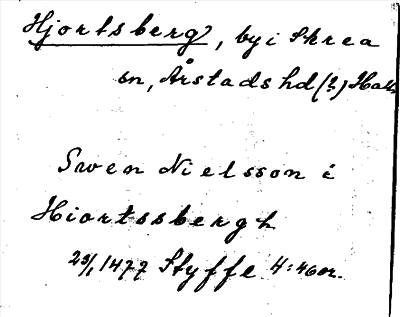 Hjortsberg, by i Skrea
sn, Årstads hd (?) Hall.
Swen Nielsson i
Hiortssbergh
29/1 1477 Styffe 4:46 or.